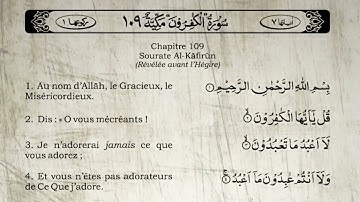 اٰیاتها ٧ سُوْرَةُ الْكٰفِرُوْنَ مَكِّيَّةٌ ١٠٩ رکوعها ١
Chapitre 109
Sourate Al-Kāfirūn
(Révélée avant l'Hégire)
1. Au nom d'Allāh, le Gracieux, le
Miséricordieux.
بِسْمِ اللّٰهِ الرَّحْمٰنِ الرَّحِيْمِ ۝١
2. Dis : « O vous mécréants !
قُلْ يٰٓاَيُّهَا الْكٰفِرُوْنَ ۝٢
3. Je n'adorerai jamais ce que
vous adorez ;
لَآ اَعْبُدُ مَا تَعْبُدُوْنَ ۝٣
4. Et vous n'êtes pas adorateurs
de Ce Que j'adore.
وَلَآ اَنْتُمْ عٰبِدُوْنَ مَآ اَعْبُدُ ۝٤